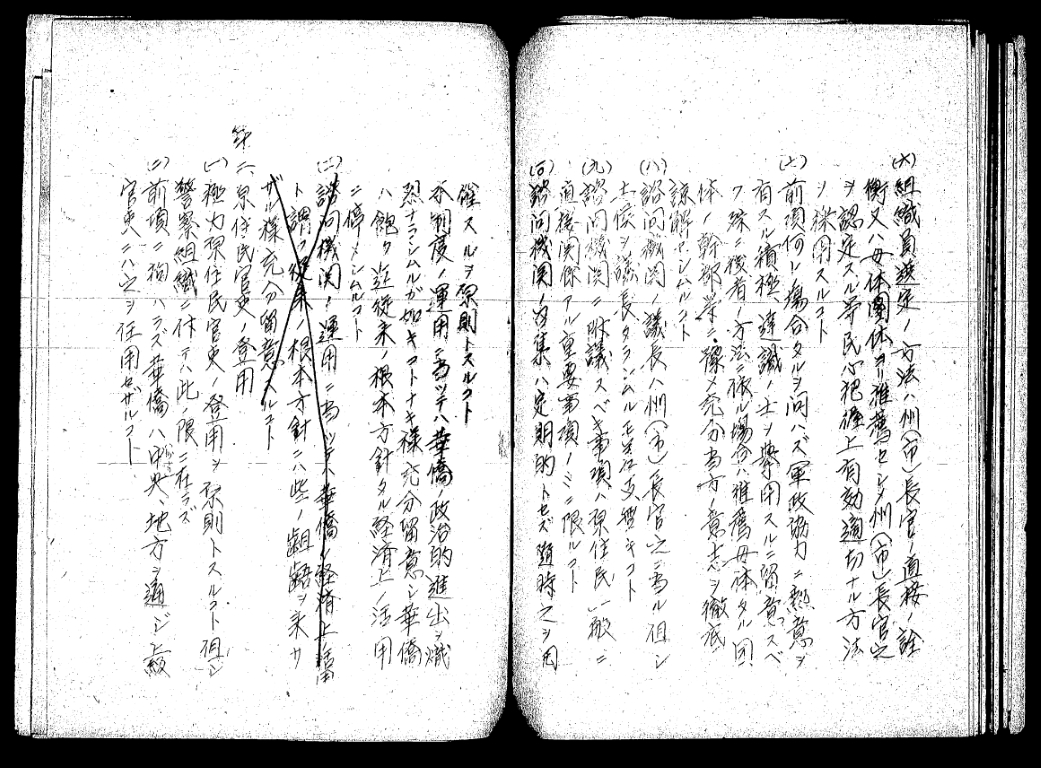 (六)組織員選定ノ方法ハ州(市)長官ノ直接ノ詮
衡又ハ母体團体ヨリ推薦セシメ州(市)長官之
ヲ認定スル等民心把握上有効適切ナル方法
ヲ採用スルコト
(七)前項何レノ場合タルヲ問ハズ軍政協力ニ熱意ヲ
有スル積極、達識ノ士ヲ挙用スルニ留意スベ
ク殊ニ後者ノ方法ニ依ル場合ハ推薦母体タル団
体ノ幹部等ニ豫メ充分当方ノ意志ヲ徹底
諒解セシムルコト
(八)諮問機関ノ議長ハ州(市)長官之ニ当ル但シ
土侯ヲ議長タラシムルモ差支無キコト
(九)諮問機関ニ附議スベキ事項ハ原住民一般ニ
直接関係アル重要事項ノミニ限ルコト
(百)諮問機関ノ召集ハ定期的トセズ随時之ヲ開
催スルヲ原則トスルコト
本制度ノ運用ニ当ツテハ華僑ノ政治的進出ヲ熾
烈ナラシムルガ如キコトナキ様充分留意シ華僑
ハ飽ク迄従来ノ根本方針タル経済上ノ活用
ニ停メシムルコト
(二)諮問機関ノ運用ニ当ツテハ華僑ノ経済上ノ活用
ト謂フ従来ノ根本方針ニハ些ノ齟齬ヲ来サ
ザル様充分留意スルコト
第二、原住民官吏ノ登用
(一)極力原住民官吏ノ登用ヲ原則トスルコト但シ
警察組織ニ付テハ此ノ限ニ在ラズ
(二)前項ニ拘ハラズ華僑ハ中央、地方ヲ通ジ上級
官吏ニハ之ヲ任用セザルコト